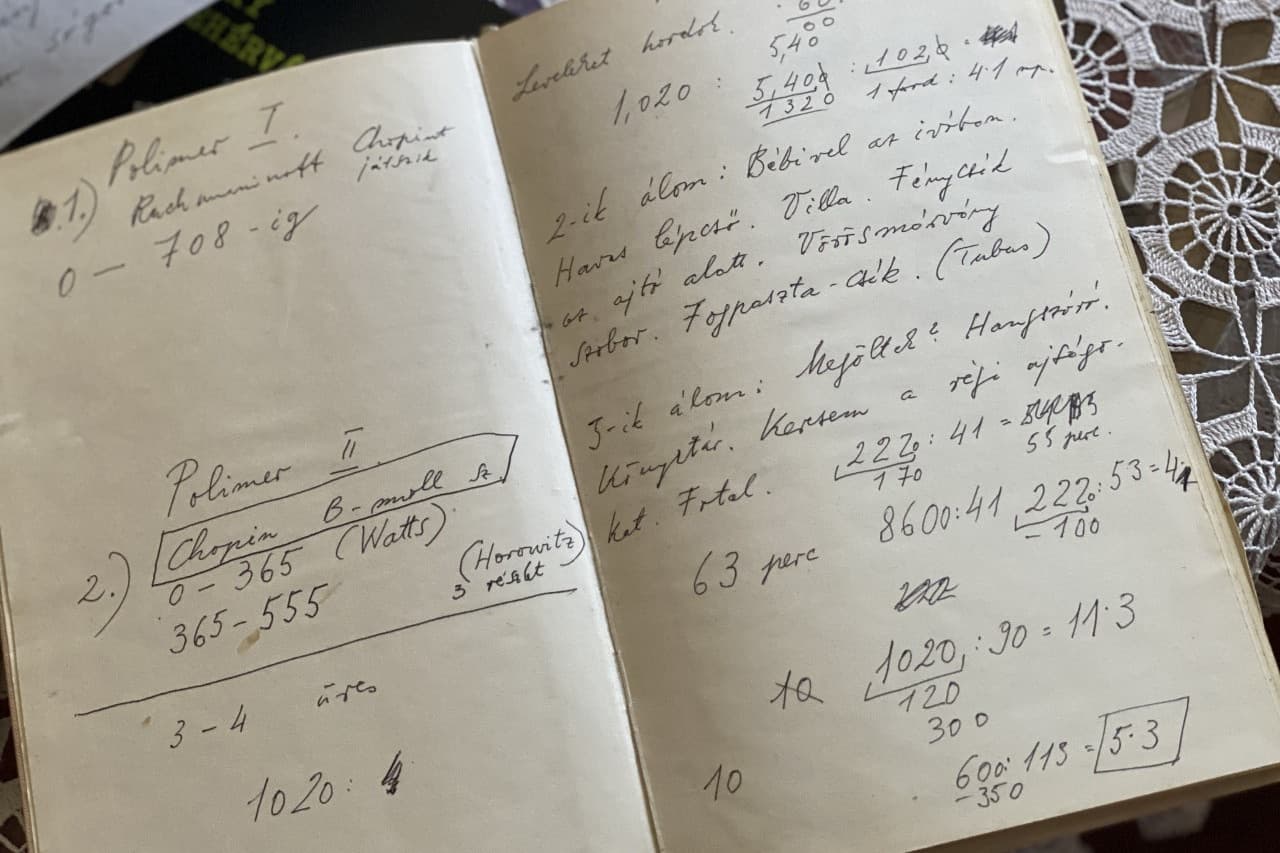 Polimer I.
1.) Rachmaninoff Chopint
játszik
0 — 708-ig
Polimer II.
Chopin B-moll sz.
2.) 0 – 365 (Watts)
365 – 555 (Horowitz)
3 részlet
3 – 4 üres
1020 :
Leveleket hordok.
60
00
5,40
1,020 : 5,400 : 1020 =
1320 1 ford : 4.1 mp.
2-ik álom : Bébivel az ivóban.
Havas lépcső. Villa. Fénycsík
az ajtó alatt. Vörösmárvány
szobor. Fogpaszta-csík. (Tubus)
3-ik álom : Megöltek? Hangszóró.
Könyvtár. Keresem a régi ujságo-
kat. Fiatal.
2220 : 41 =
170 55 perc.
63 perc 8600:41 2220:53=41
-100
1020 : 90 = 11.3
10 120
300
10 600:113 = 5.3
-350